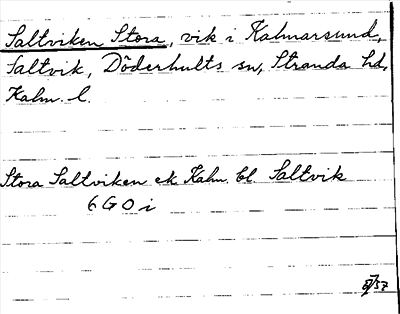 Saltviken Stora, vik i Kalmarsund,
Saltvik, Döderhults sn, Stranda hd,
Kalm. l.
Stora Saltviken ek Kalm. bl. Saltvik
6 G O i
/57